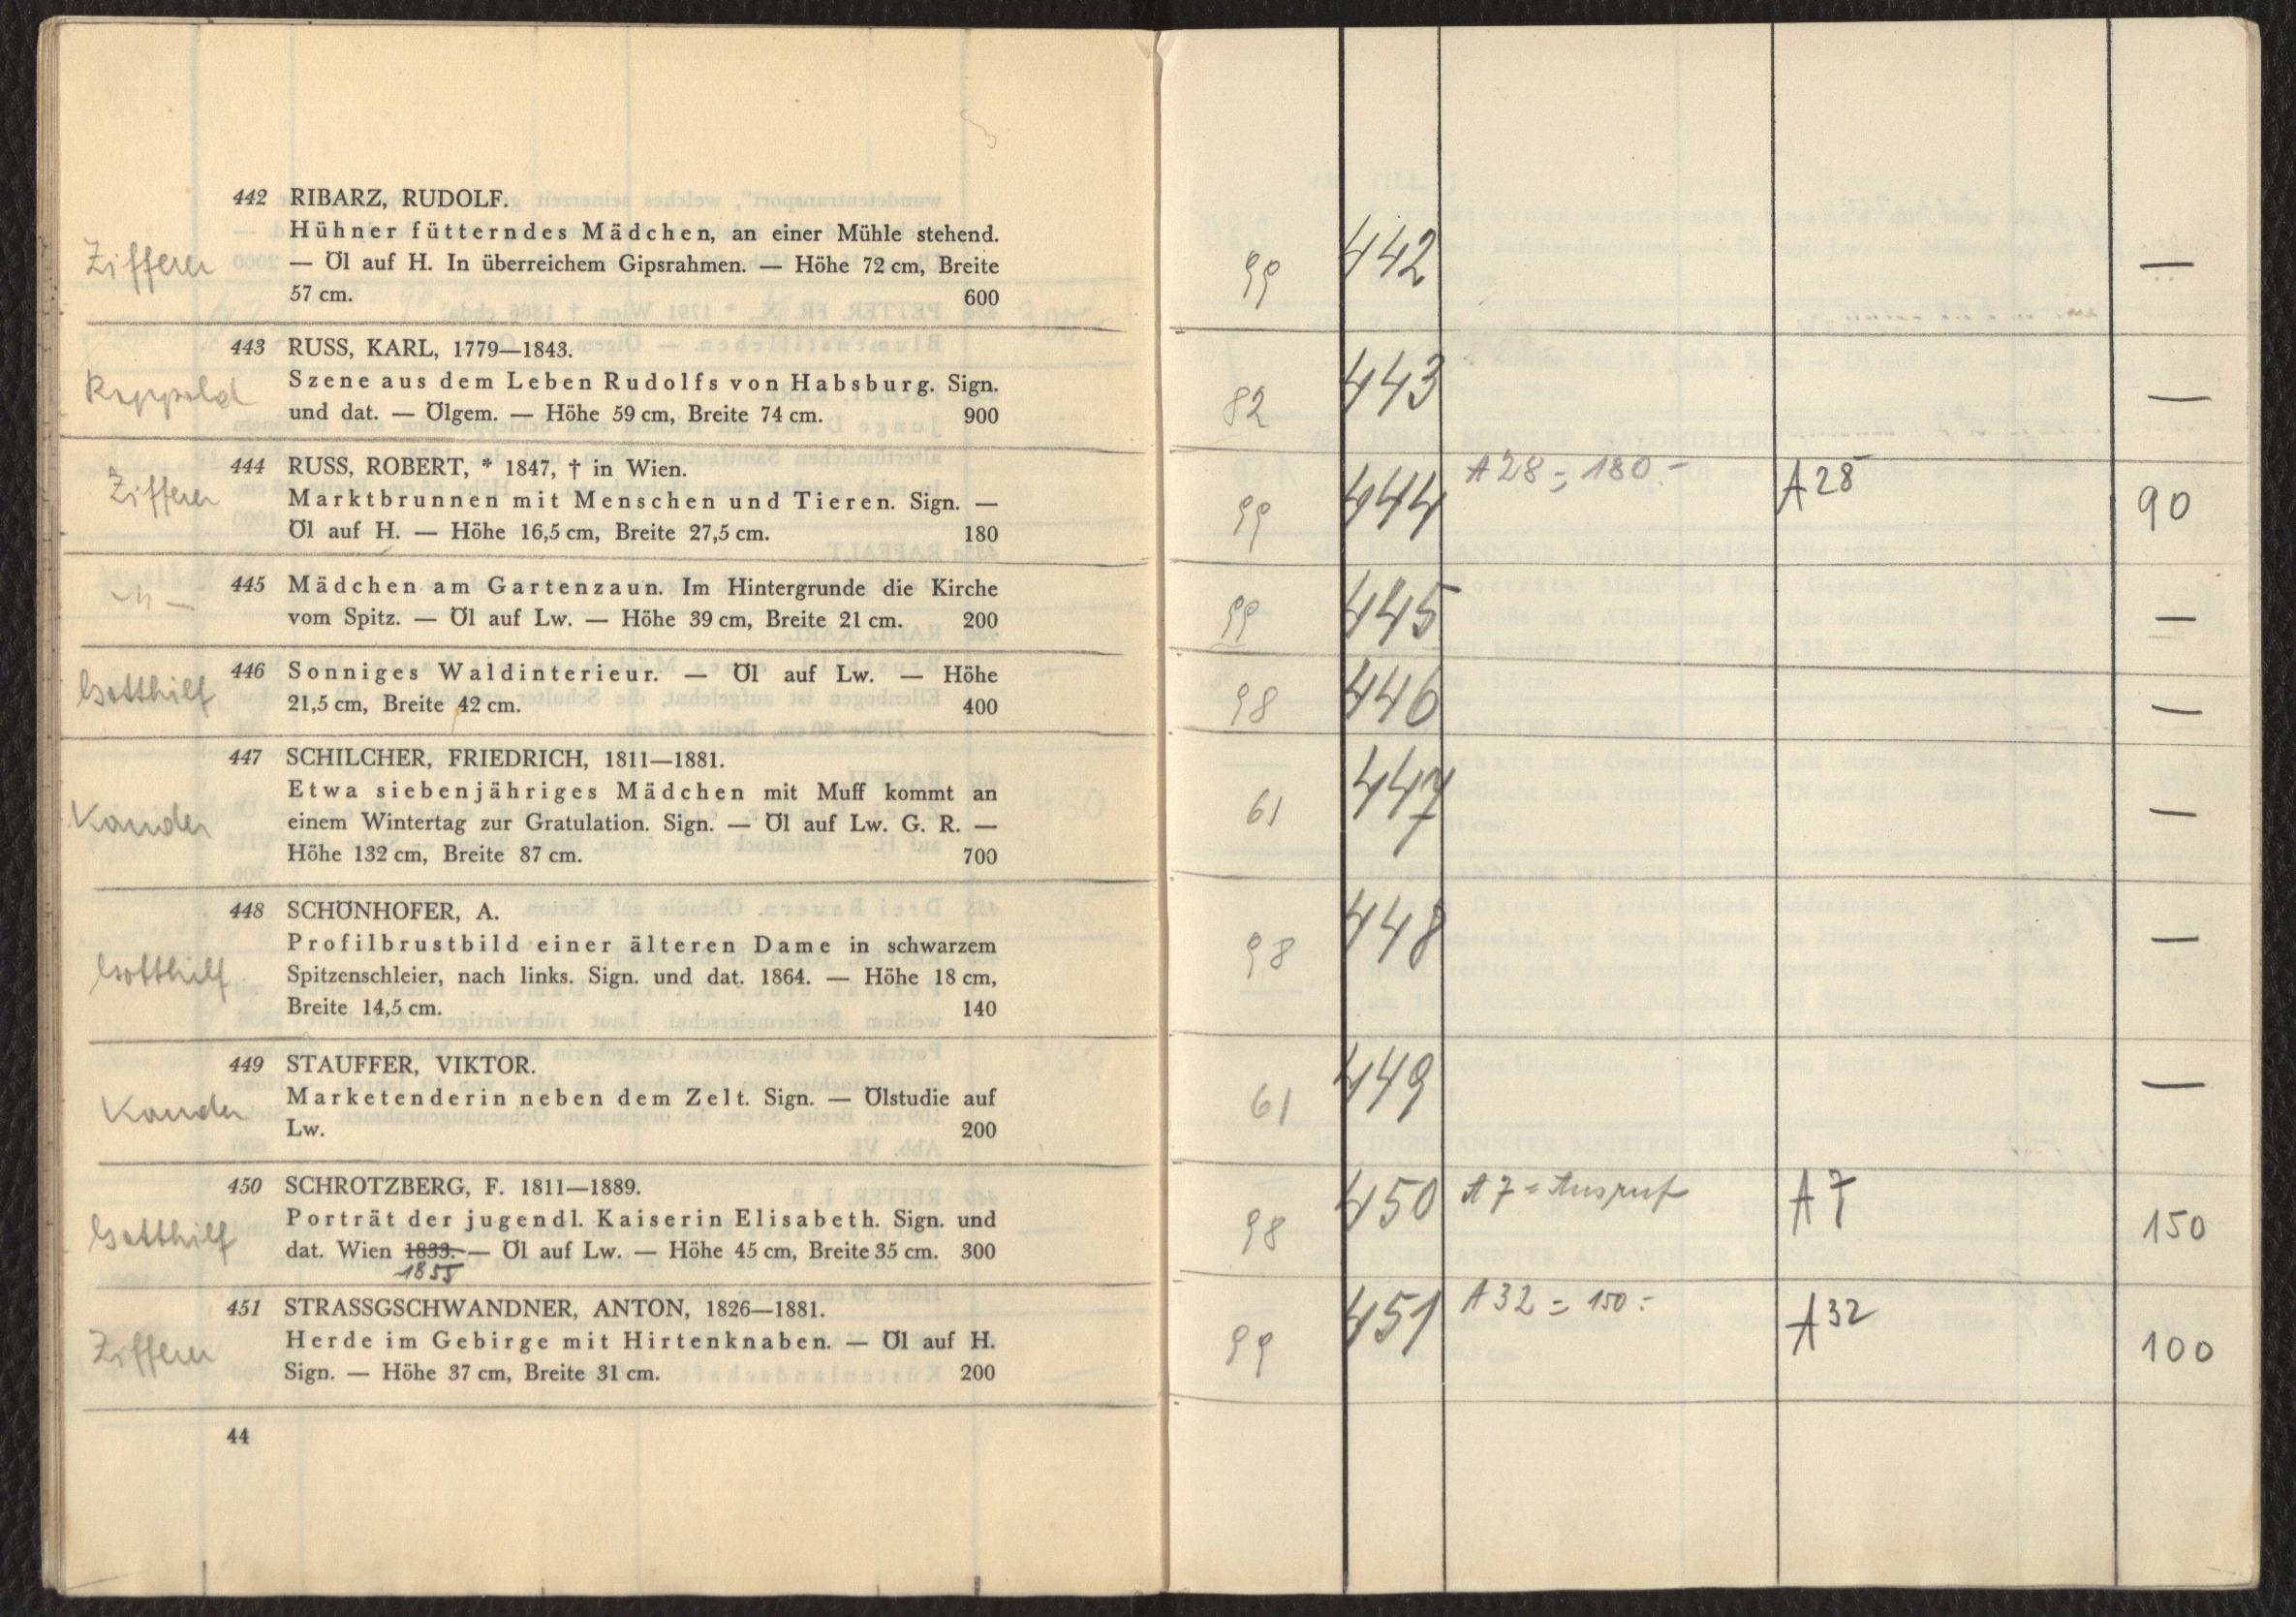 442 RIBARZ, RUDOLF.
Hühner fütterndes Mädchen, an einer Mühle stehend.
Zifferer — Öl auf H. In überreichem Gipsrahmen. — Höhe 72 cm, Breite
57 cm. 600
443 RUSS, KARL, 1779—1843.
Rappold Szene aus dem Leben Rudolfs von Habsburg. Sign.
und dat. — Ölgem. — Höhe 59 cm, Breite 74 cm. 900
444 RUSS, ROBERT, * 1847, † in Wien.
Zifferer Marktbrunnen mit Menschen und Tieren. Sign. —
Öl auf H. — Höhe 16,5 cm, Breite 27,5 cm. 180
445 Mädchen am Gartenzaun. Im Hintergrunde die Kirche
vom Spitz. — Öl auf Lw. — Höhe 39 cm, Breite 21 cm. 200
446 Sonniges Waldinterieur. — Öl auf Lw. — Höhe
Gotthilf 21,5 cm, Breite 42 cm. 400
447 SCHILCHER, FRIEDRICH, 1811—1881.
Etwa siebenjähriges Mädchen mit Muff kommt an
Kander einem Wintertag zur Gratulation. Sign. — Öl auf Lw. G. R. —
Höhe 132 cm, Breite 87 cm. 700
448 SCHÖNHOFER, A.
Profilbrustbild einer älteren Dame in schwarzem
Gotthilf Spitzenschleier, nach links. Sign. und dat. 1864. — Höhe 18 cm,
Breite 14,5 cm. 140
449 STAUFFER, VIKTOR.
Kander Marketenderin neben dem Zelt. Sign. — Ölstudie auf
Lw. 200
450 SCHROTZBERG, F. 1811—1889.
Gotthilf Porträt der jugendl. Kaiserin Elisabeth. Sign. und
dat. Wien 1833. — Öl auf Lw. — Höhe 45 cm, Breite 35 cm. 300
1855
451 STRASSGSCHWANDNER, ANTON, 1826—1881.
Zifferer Herde im Gebirge mit Hirtenknaben. — Öl auf H.
Sign. — Höhe 37 cm, Breite 31 cm. 200
44
99 442 —
82 443 —
99 444 A 28 = 180.- A 28 90
99 445 —
98 446 —
61 447 —
98 448 —
61 449 —
98 450 A 7 = Ausruf A 7 150
99 451 A 32 = 150.- A 32 100